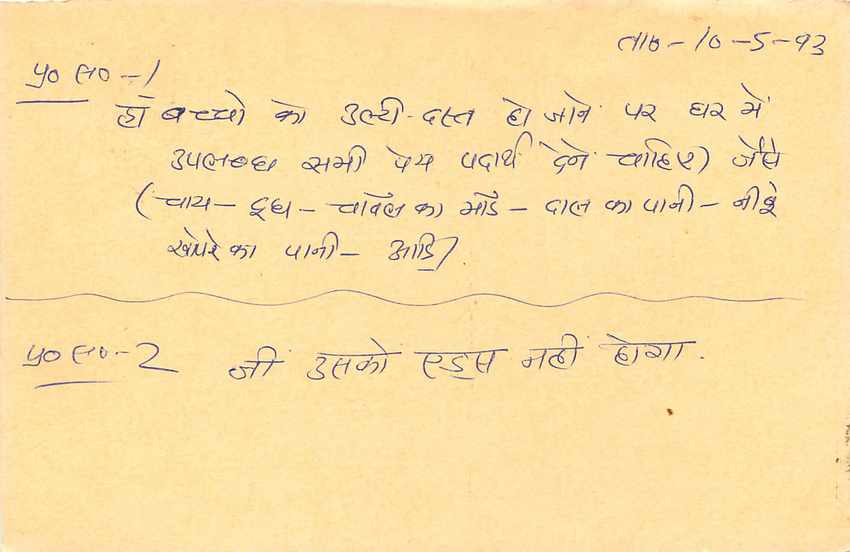 ता० - 10 - 5 - 93
प्र० स० - 1
हाँ बच्चो को उल्टी - दस्त हो जाने पर घर में
उपलब्ध सभी पेय पदार्थ देने चाहिए) जैसे
(चाय - दूध - चाँवल का माँड - दाल का पानी - नींबू
खोपरे का पानी - आदि)
प्र० स० - 2 जीं उसको एड्स नहीं होगा.